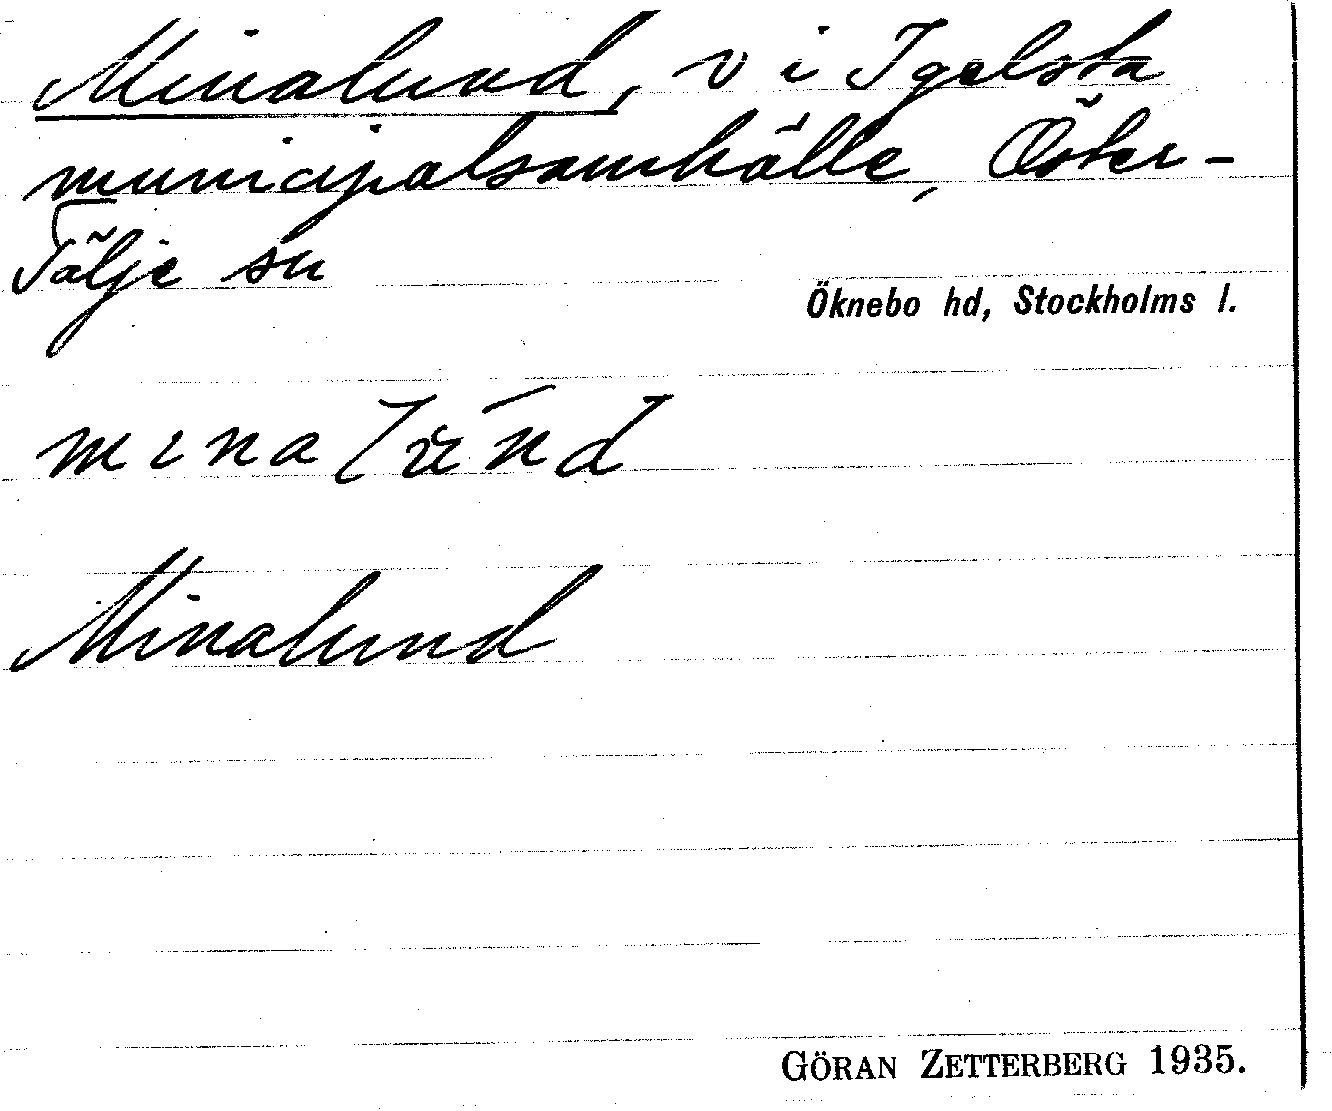 Minalund, v i Igelsta
municipalsamhälle, Öster-
Tälje sn
Öknebo hd, Stockholms l.
Minalund
GÖRAN ZETTERBERG 1935.